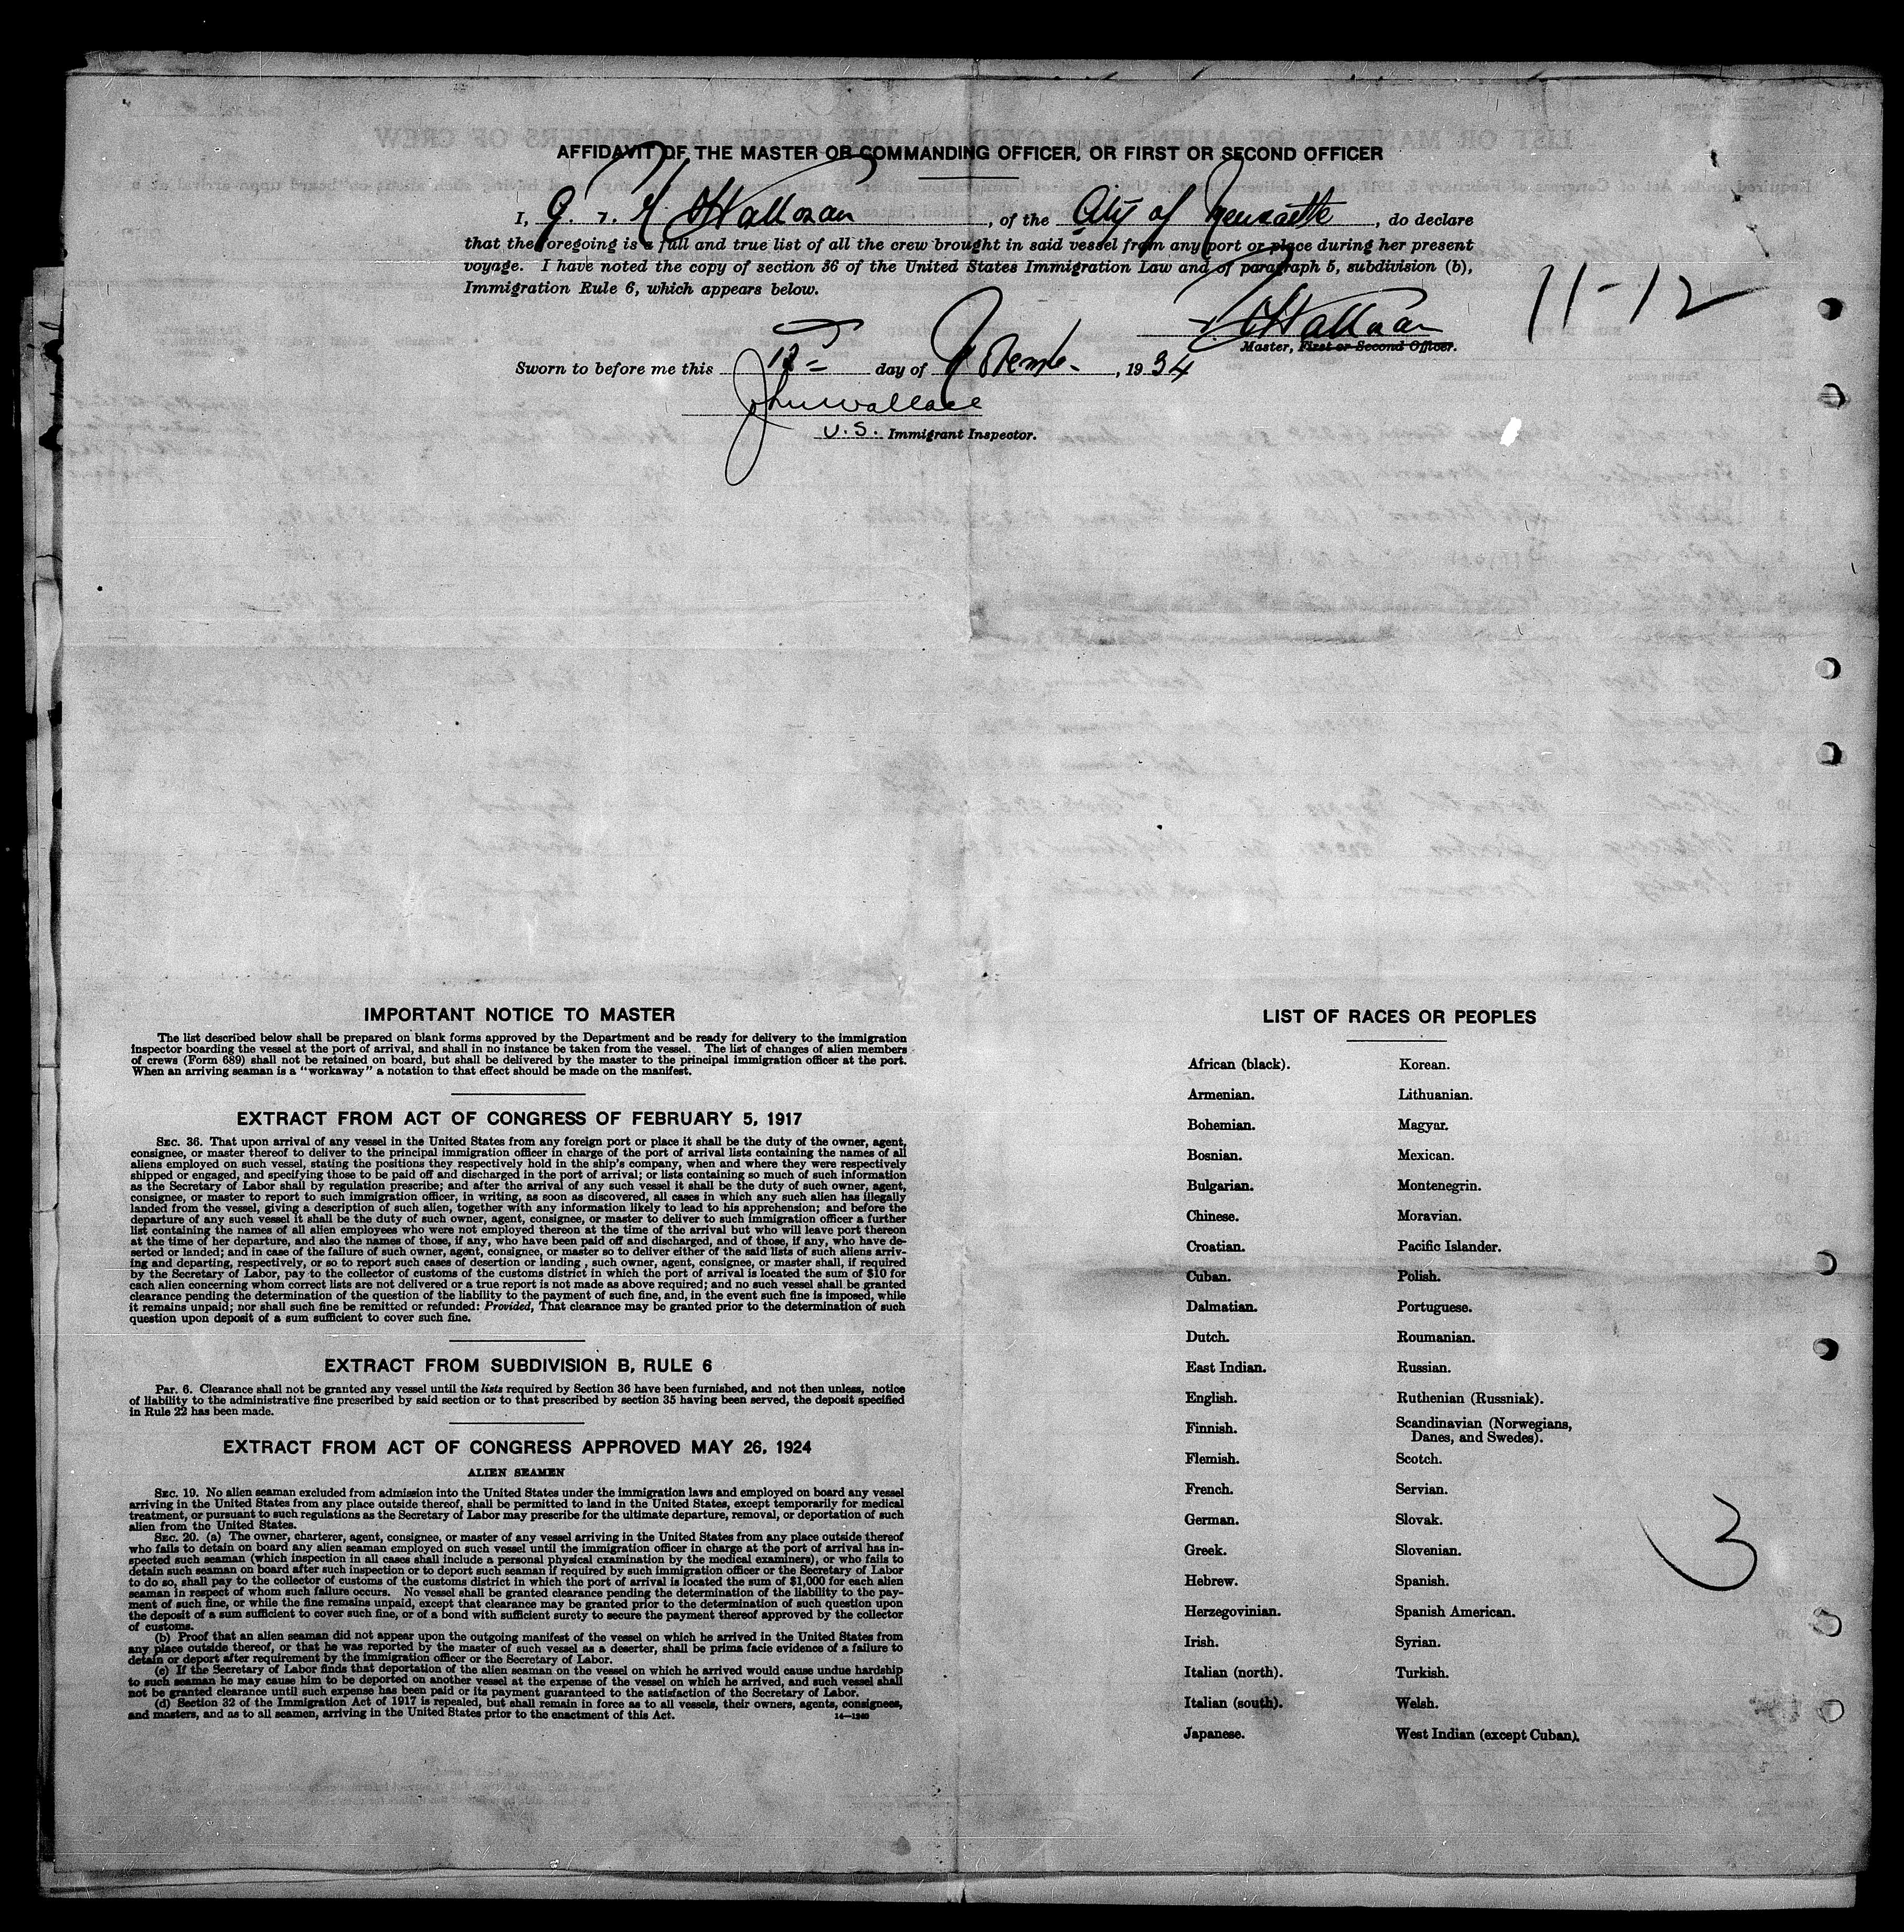 AFFIDAVIT OF THE MASTER OR COMMANDING OFFICER, OR FIRST OR SECOND OFFICER
I, G. , of the City of Newcastle, do declare
that the foregoing is a full and true list of all the crew brought in said vessel from any port or place during her present
voyage. I have noted the copy of section 36 of the United States Immigration Law and of paragraph 5, subdivision (b),
Immigration Rule 6, which appears below.
11-12
Master, First or Second Officer.
Sworn to before me this 12 day of , 1934
John Wallace
U.S. Immigrant Inspector.
IMPORTANT NOTICE TO MASTER
The list described below shall be prepared on blank forms approved by the Department and be ready for delivery to the immigration
inspector boarding the vessel at the port of arrival, and shall in no instance be taken from the vessel. The list of changes of alien members
of crews (Form 689) shall not be retained on board, but shall be delivered by the master to the principal immigration officer at the port.
When an arriving seaman is a "workaway" a notation to that effect should be made on the manifest.
EXTRACT FROM ACT OF CONGRESS OF FEBRUARY 5, 1917
SEC. 36. That upon arrival of any vessel in the United States from any foreign port or place it shall be the duty of the owner, agent,
consignee, or master thereof to deliver to the principal immigration officer in charge of the port of arrival lists containing the names of all
aliens employed on such vessel, stating the positions they respectively hold in the ship's company, when and where they were respectively
shipped or engaged, and specifying those to be paid off and discharged in the port of arrival; or lists containing so much of such information
as the Secretary of Labor shall by regulation prescribe; and after the arrival of any such vessel it shall be the duty of such owner, agent,
consignee, or master to report to such immigration officer, in writing, as soon as discovered, all cases in which any such alien has illegally
landed from the vessel, giving a description of such alien, together with any information likely to lead to his apprehension; and before the
departure of any such vessel it shall be the duty of such owner, agent, consignee, or master to deliver to such immigration officer a further
list containing the names of all alien employees who were not employed thereon at the time of the arrival but who will leave port thereon
at the time of her departure, and also the names of those, if any, who have been paid off and discharged, and of those, if any, who have de-
serted or landed; and in case of the failure of such owner, agent, consignee, or master so to deliver either of the said lists of such aliens arriv-
ing and departing, respectively, or so to report such cases of desertion or landing , such owner, agent, consignee, or master shall, if required
by the Secretary of Labor, pay to the collector of customs of the customs district in which the port of arrival is located the sum of $10 for
each alien concerning whom correct lists are not delivered or a true report is not made as above required; and no such vessel shall be granted
clearance pending the determination of the question of the liability to the payment of such fine, and, in the event such fine is imposed, while
it remains unpaid; nor shall such fine be remitted or refunded: Provided, That clearance may be granted prior to the determination of such
question upon deposit of a sum sufficient to cover such fine.
EXTRACT FROM SUBDIVISION B, RULE 6
Par. 6. Clearance shall not be granted any vessel until the lists required by Section 36 have been furnished, and not then unless, notice
of liability to the administrative fine prescribed by said section or to that prescribed by section 35 having been served, the deposit specified
in Rule 22 has been made.
EXTRACT FROM ACT OF CONGRESS APPROVED MAY 26, 1924
ALIEN SEAMEN
SEC. 19. No alien seaman excluded from admission into the United States under the immigration laws and employed on board any vessel
arriving in the United States from any place outside thereof, shall be permitted to land in the United States, except temporarily for medical
treatment, or pursuant to such regulations as the Secretary of Labor may prescribe for the ultimate departure, removal, or deportation of such
alien from the United States.
SEC. 20. (a) The owner, charterer, agent, consignee, or master of any vessel arriving in the United States from any place outside thereof
who fails to detain on board any alien seaman employed on such vessel until the immigration officer in charge at the port of arrival has in-
spected such seaman (which inspection in all cases shall include a personal physical examination by the medical examiners), or who fails to
detain such seaman on board after such inspection or to deport such seaman if required by such immigration officer or the Secretary of Labor
to do so, shall pay to the collector of customs of the customs district in which the port of arrival is located the sum of $1,000 for each alien
seaman in respect of whom such failure occurs. No vessel shall be granted clearance pending the determination of the liability to the pay-
ment of such fine, or while the fine remains unpaid, except that clearance may be granted prior to the determination of such question upon
the deposit of a sum sufficient to cover such fine, or of a bond with sufficient surety to secure the payment thereof approved by the collector
of customs.
(b) Proof that an alien seaman did not appear upon the outgoing manifest of the vessel on which he arrived in the United States from
any place outside thereof, or that he was reported by the master of such vessel as a deserter, shall be prima facie evidence of a failure to
detain or deport after requirement by the immigration officer or the Secretary of Labor.
(c) If the Secretary of Labor finds that deportation of the alien seaman on the vessel on which he arrived would cause undue hardship
to such seaman he may cause him to be deported on another vessel at the expense of the vessel on which he arrived, and such vessel shall
not be granted clearance until such expense has been paid or its payment guaranteed to the satisfaction of the Secretary of Labor.
(d) Section 32 of the Immigration Act of 1917 is repealed, but shall remain in force as to all vessels, their owners, agents, consignees,
and masters, and as to all seamen, arriving in the United States prior to the enactment of this Act.
14—1240
LIST OF RACES OR PEOPLES
African (black). Korean.
Armenian. Lithuanian.
Bohemian. Magyar.
Bosnian. Mexican.
Bulgarian. Montenegrin.
Chinese. Moravian.
Croatian. Pacific Islander.
Cuban. Polish.
Dalmatian. Portuguese.
Dutch. Roumanian.
East Indian. Russian.
English. Ruthenian (Russniak).
Finnish. Scandinavian (Norwegians,
Danes, and Swedes).
Flemish. Scotch.
French. Servian.
German. Slovak.
Greek. Slovenian.
Hebrew. Spanish.
Herzegovinian. Spanish American.
Irish. Syrian.
Italian (north). Turkish.
Italian (south). Welsh.
Japanese. West Indian (except Cuban).
3